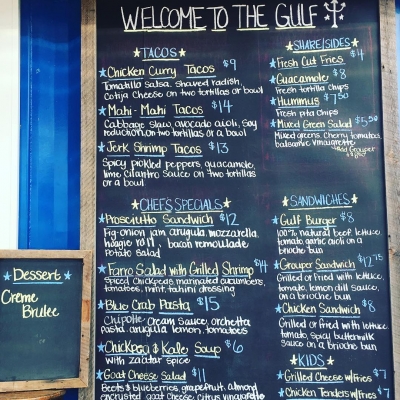 WELCOME TO THE GULF
TACOS
Chicken Curry Tacos $9
Tomatillo Salsa, shaved radish,
Cotija Cheese on two tortillas or bowl
Mahi-Mahi Tacos $14
Cabbage Slaw, avocado aioli, Soy
reduction, on two tortillas or a bowl
Jerk Shrimp Tacos $13
Spicy pickled peppers, guacamole,
lime cilantro Sauce on two tortillas
or a bowl
CHEFS SPECIALS
Prosciutto Sandwich $12
Fig-onion jam arugula, mozzarella,
hoagie roll, bacon remoulade
Potato Salad
Farro Salad with Grilled Shrimp $14
Spiced Chickpeas, marinated cucumbers,
tomatoes, mint, tahini dressing
Blue Crab Pasta $15
Chipotle Cream Sauce, orchetta
pasta, arugula, lemon, tomatoes
Chickpea & Kale Soup $6
with zaatar spice
Goat Cheese Salad $11
Beets & blueberries, grapefruit, almond
encrusted goat Cheese, citrus vinaigrette
SHARE/SIDES
Fresh Cut Fries $4
Guacamole $8
Fresh tortilla Chips
Hummus $7.50
Fresh pita Chips
Mixed Green Salad $5.50
Mixed greens, Cherry tomatoes,
balsamic vinaigrette
Grouper
SANDWICHES
Gulf Burger $8
100% natural beef, lettuce,
tomato, garlic aioli on a
brioche bun
Grouper Sandwich $12.75
Grilled or Fried with lettuce,
tomato, lemon dill sauce
on a brioche bun
Chicken Sandwich $8
Grilled or fried with lettuce,
tomato, Spicy buttermilk
sauce on a brioche bun
KIDS
Grilled Cheese w/Fries $7
Chicken Tenders w/Fries $7
Dessert
Creme
Brulee